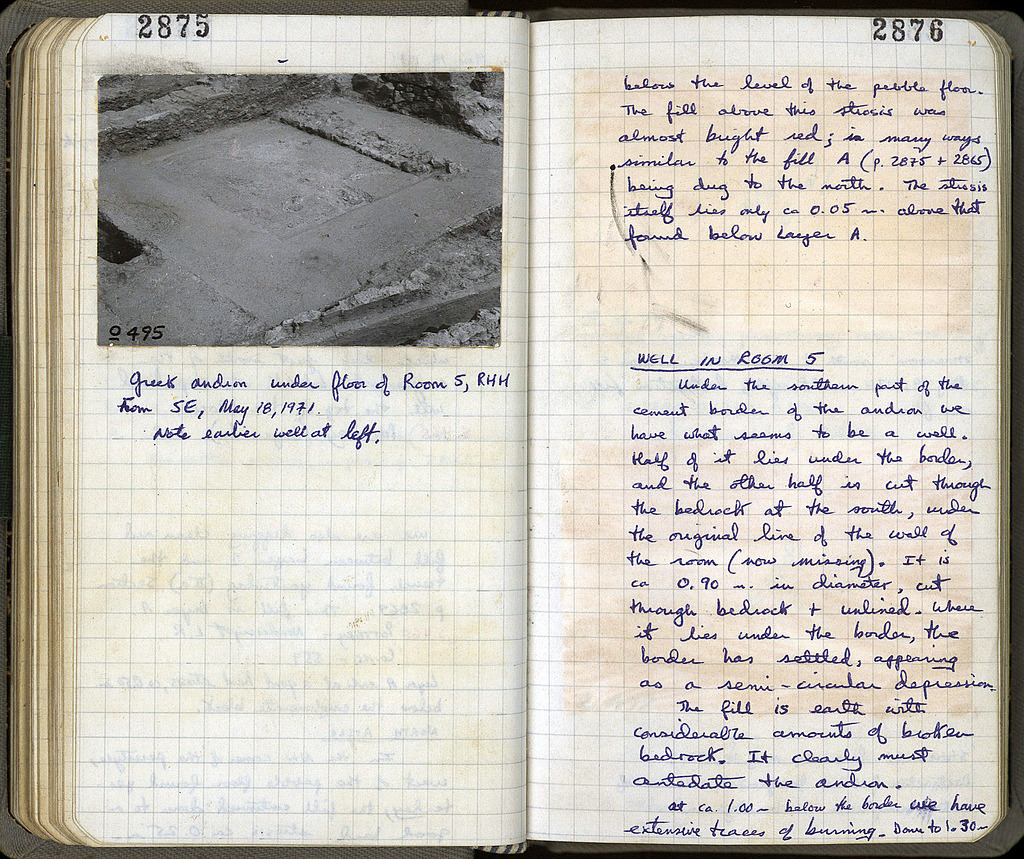 2875
O 495
Greek andron under floor of Room 5, RHH
from SE, May 18, 1971.
Note earlier well at left.
2876
below the level of the pebble floor.
The fill above this strosis was
almost bright red; in many ways
similar to the fill A (p. 2875 + 2865)
being dug to the north. The strosis
itself lies only ca 0.05 m. above that
found below Layer A.
WELL IN ROOM 5
Under the southern part of the
cement border of the andron we
have what seems to be a well.
Half of it lies under the border,
and the other half is cut through
the bedrock at the south, under
the original line of the wall of
the room (now missing). It is
ca 0.90 m. in diameter, cut
through bedrock + unlined. Where
it lies under the border, the
border has settled, appearing
as a semi-circular depression.
The fill is earth with
considerable amounts of broken
bedrock. It clearly must
antedate the andron.
At ca. 1.00 m below the border we have
extensive traces of burning. Down to 1.30 m